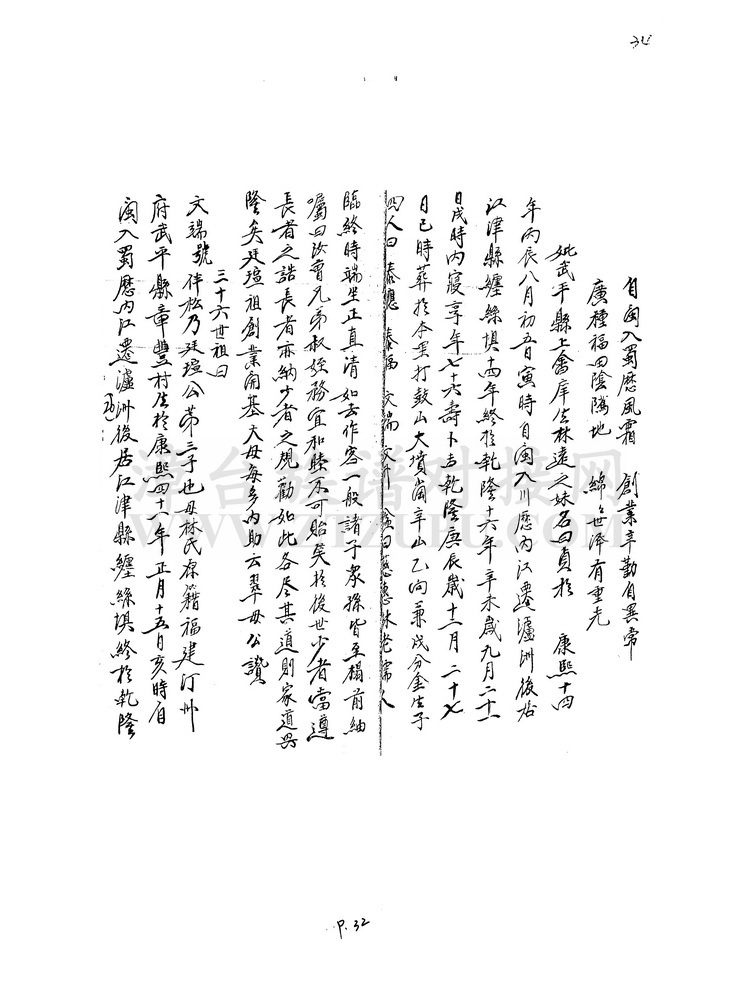 34
自闽入蜀歷風霜　創業辛勤自異常
廣種福田陰隲地　綿々世澤有重光
妣武平縣上畬庠生林遠之妹名曰貞於　康熙十四
年丙辰八月初五日寅時自闽入川歷内江遷瀘洲後居
江津縣纏絲垻十四年終於乾隆十六年辛未歲九月二十一
日戌時内寢享年七十六壽卜吉乾隆庚辰歲十二月二十七
日巳時葬於本里打鼓山大墳崗辛山乙向兼戌分金生子
四人曰
臨終時端坐正直清如去作客一般諸子衆孫皆至榻前
囑曰汝曹兄弟叔姪務宜和睦不可貽笑於後世少者當遵
長者之誥長者亦納少者之規勸如此各尽其道則家道興
隆矣廷瑄祖創業開基大母每多内助云翠母公讚
三十六世祖曰
文端號件松乃廷瑄公第三子也母林氏原籍福建汀州
府武平縣章豐村生於康熙四十一年正月十五日亥時自
闽入蜀歷内江遷瀘洲後居江津縣纏絲垻終於乾隆
P.32